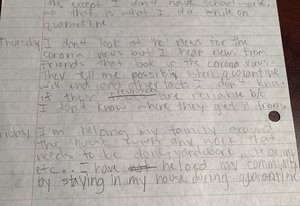 the except I don't have school work,
so that's what I do while on
quarantine.
Thursday I don't look at the news for the
corona virus but I hear news from
friends that look up the corona virus.
They tell me possibly when quarantine
will end and other facts I don't know
if their are reliable b/c
I don't know where they get it from.
Friday I'm helping my family around
the house with any work that
needs to be done, yardwork,
etc.. I have helped my community
by staying in my house during quarantine